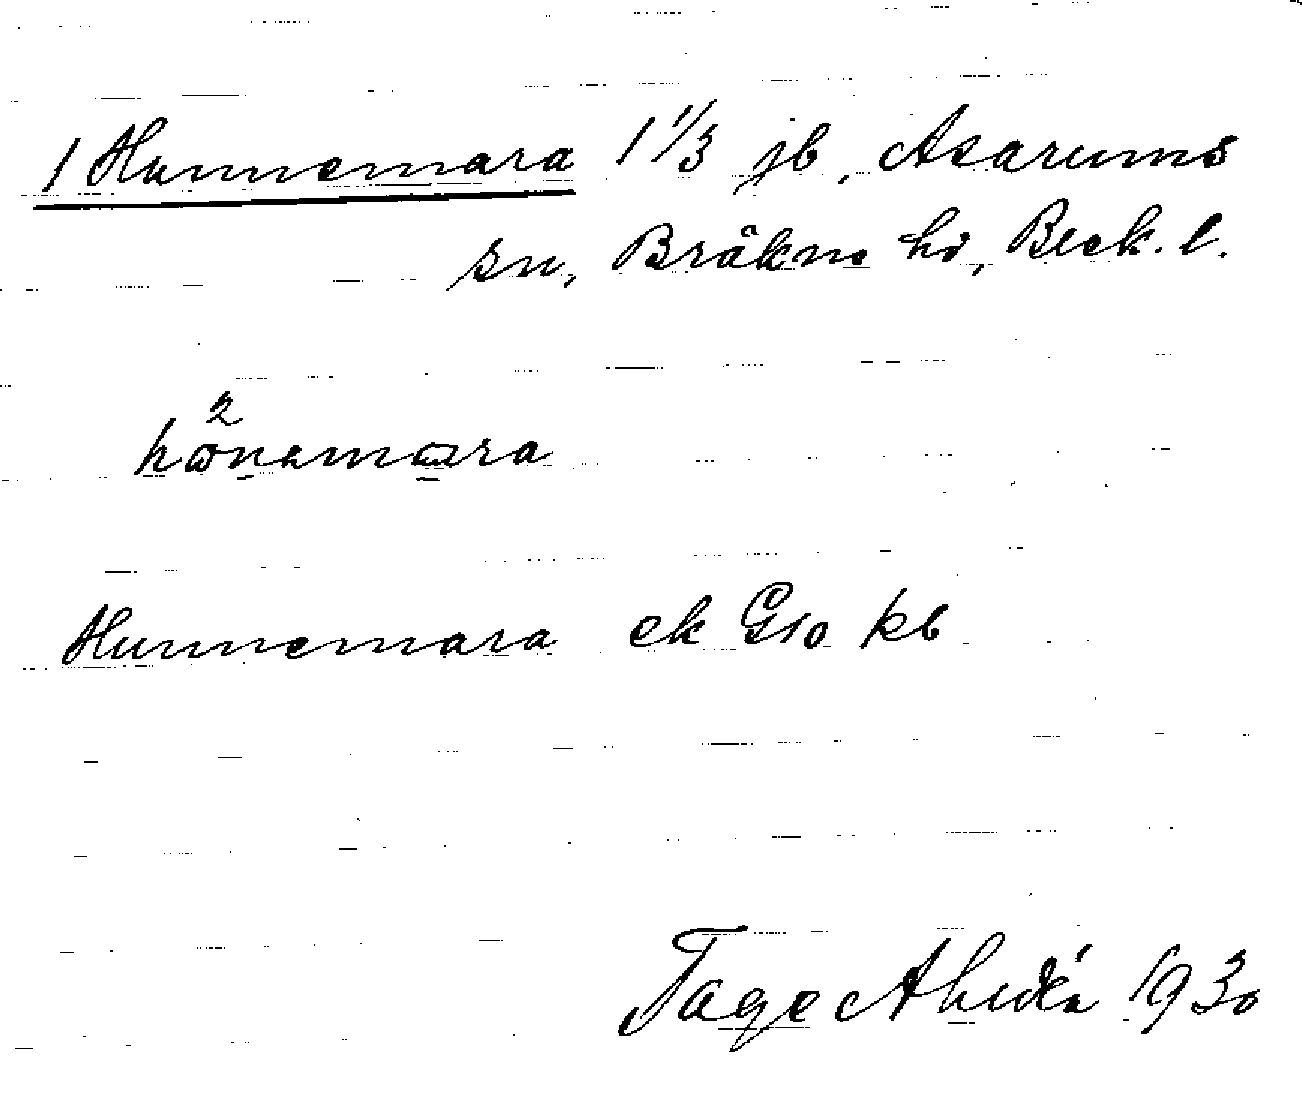 1 Hunnemara 1 1/3 jb, Asarums
sn, Bräkne hd, Bleck. l.
Hunnemara ek G10 kb
Tage Ahldén 1930